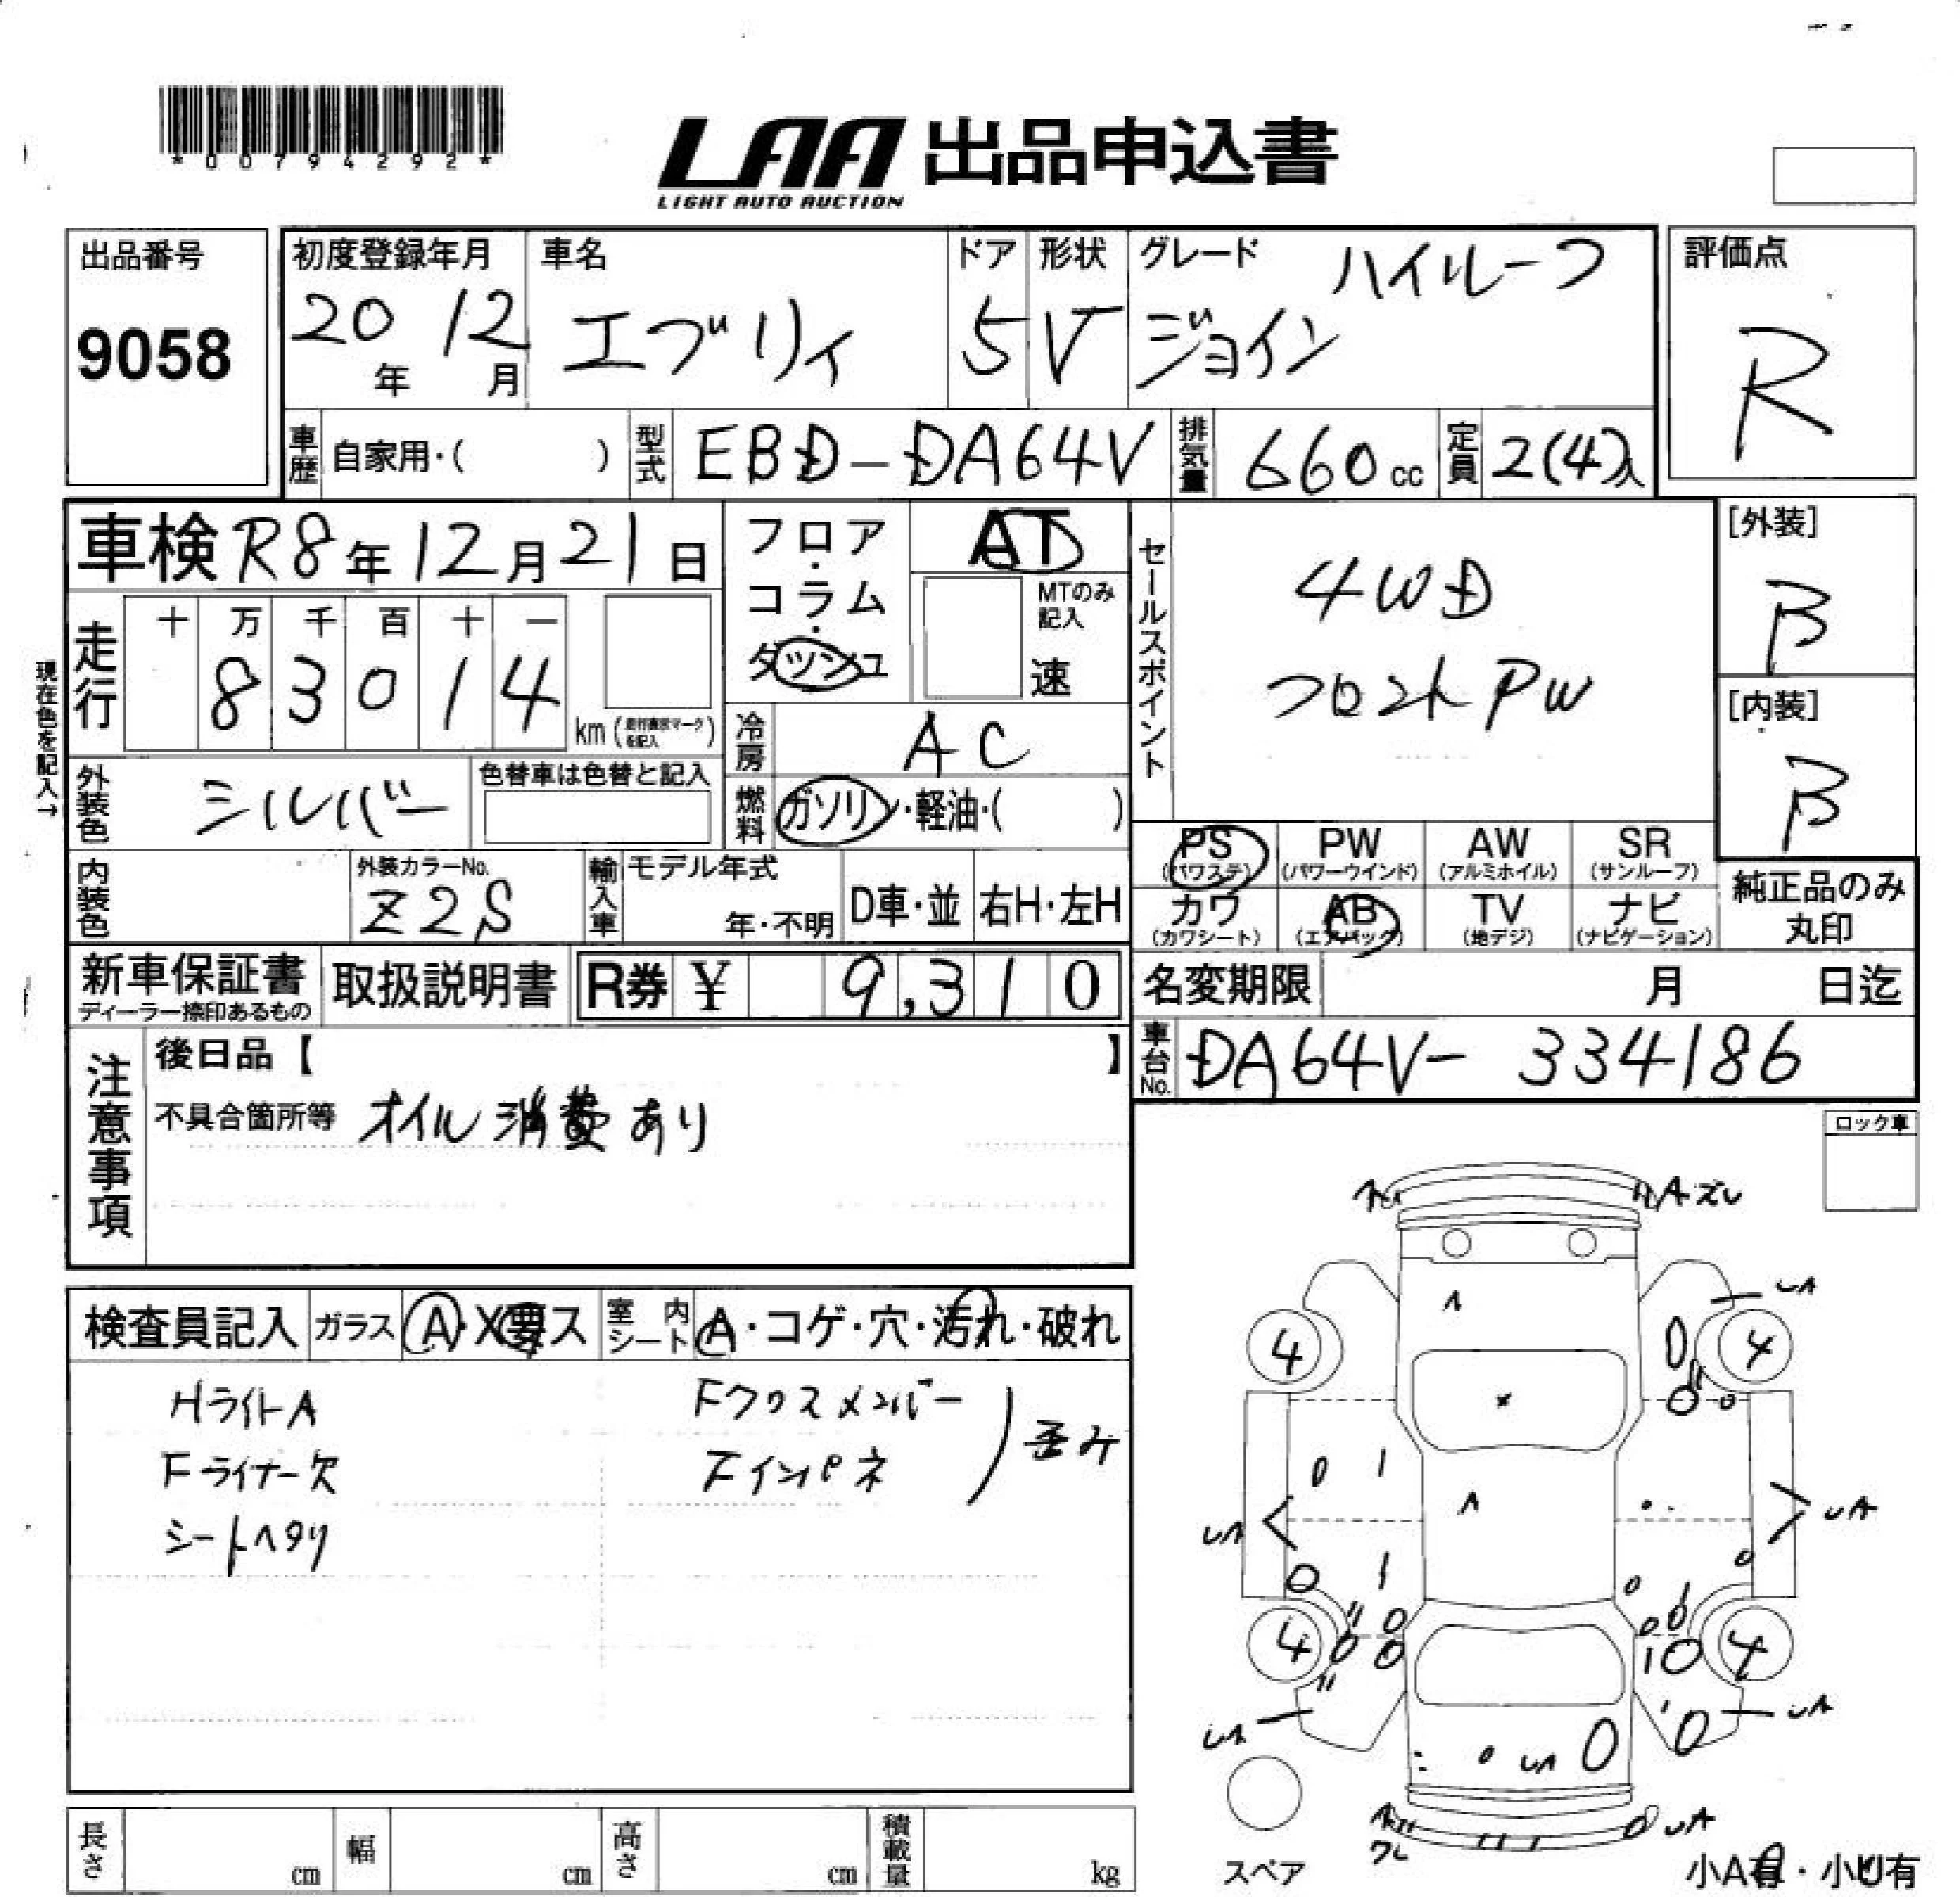 *00794292*
LAA 出品申込書
LIGHT AUTO AUCTION
出品番号
9058
初度登録年月
20年 12月
車名
エブリィ
ドア
5
形状
V
グレード
ハイルーフ
ジョイン
評価点
R
車歴 自家用・( )
型式 EBD-DA64V
排気量 660cc
定員 2(4)人
車検 R8年12月21日
フロア・コラム・ダッシュ
AT
MTのみ記入
速
セールスポイント
4WD
フロントPW
[外装]
B
[内装]
B
現在色を記入→
走行 十 万 千 百 十 一
83014
km(走行不明マークを記入)
冷房 AC
燃料 ガソリン・軽油・( )
外装色 シルバー
色替車は色替と記入
内装色
外装カラーNo.
Z2S
輸入車 モデル年式
年・不明
D車・並
右H・左H
PS
(パワステ)
PW
(パワーウインド)
AW
(アルミホイル)
SR
(サンルーフ)
カワ
(カワシート)
AB
(エアバック)
TV
(地デジ)
ナビ
(ナビゲーション)
純正品のみ
丸印
新車保証書
ディーラー捺印あるもの
取扱説明書
R券 ¥ 9,310
名変期限 月 日迄
車台No. DA64V-334186
注意事項
後日品【 】
不具合箇所等 オイル消費あり
ロック車
検査員記入 ガラス A・X要ス
室内シート A・コゲ・穴・汚れ・破れ
HライトA
Fライナー欠
シートヘタリ
Fクロスメンバー
Fインパネ
歪み
Aズレ
UA
4
4
UA
UA
4
4
UA
UA
UA
UA
ワレ
スペア
小A有・小U有
長さ cm
幅 cm
高さ cm
積載量 kg